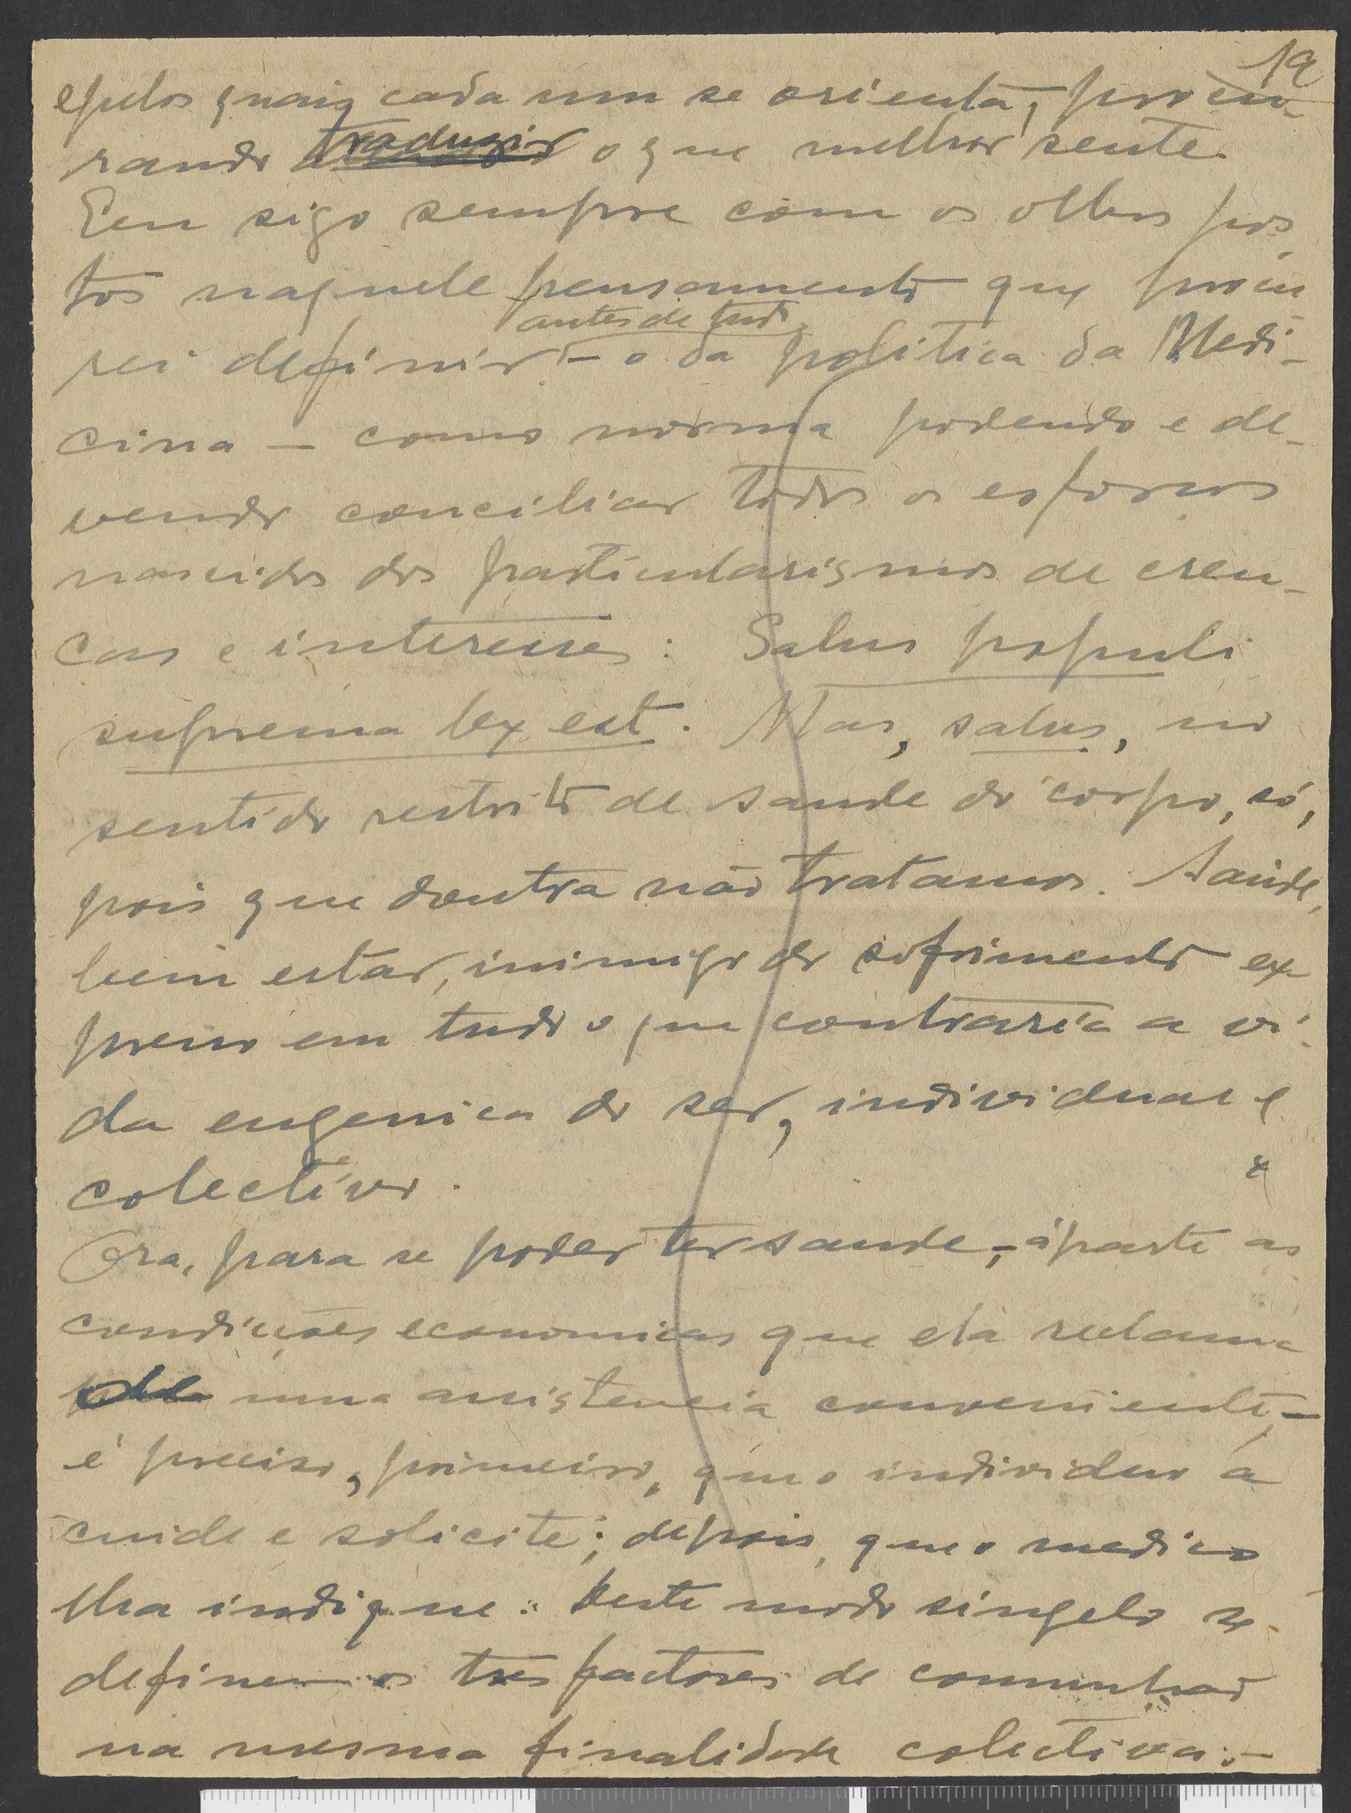 19
e pelos quais cada um se orienta, procu-
rando traduzir o que melhor sente.
Eeu sigo sempre com os olhos pos
tos naquele pensamento que procu
antes de tudo
rei definir - o da politica da Medi-
cina - como norma podendo e de-
vendo conciliar todos os esforços
nascidos dos particularismos de cren-
ças e interesses: Salus populi
suprema lex est. Mas, salus, no
sentido restrito de saude do corpo, só,
pois que doutra não tratamos. Saúde,
bem estar, inimigo do sofrimento ex-
presso em tudo o que contraría a vi-
da eugenica do ser, individual e
colectivo.
Ora, para se poder ter saude, - áparte as
condições economicas que ela reclama
uma assistencia conveniente, -
é preciso, primeiro, que o individuo a
cuide e solicite; depois, que o medico
lha indique. Deste modo singelo se
definem os tres factores de comunhão
na mesma finalidade colectiva: -